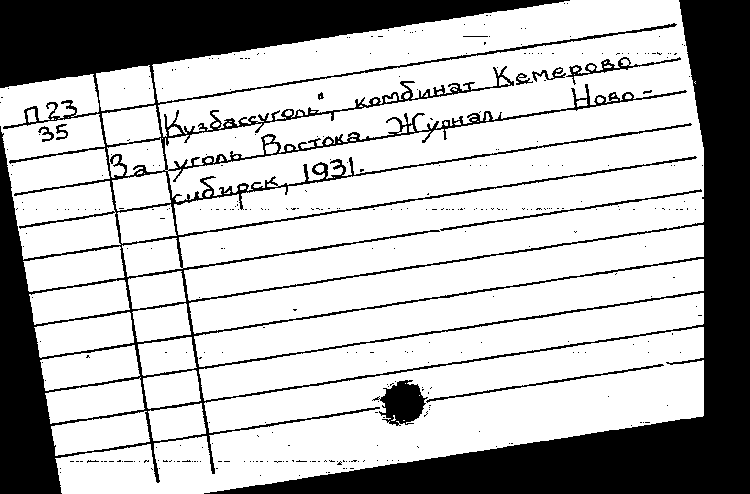 П 23
35
Кузбассуголь", комбинат Кемерово
За уголь Востока. Журнал. Ново-
сибирск, 1931.